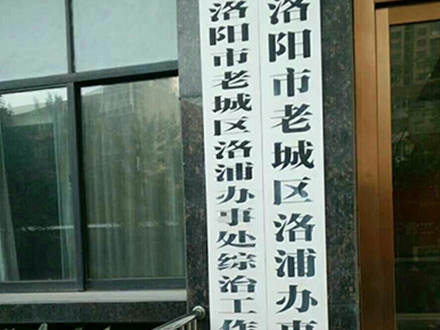 洛阳市老城区洛浦办事
洛阳市老城区洛浦办事处综治工作